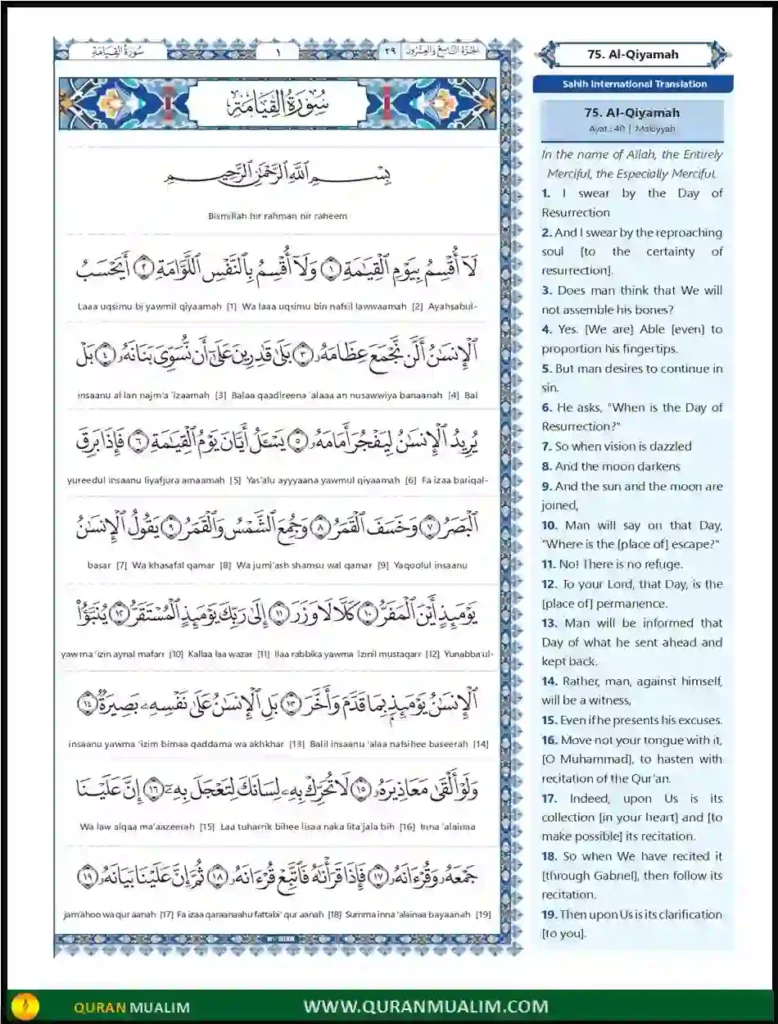 سُورَةُ القِيَامَةِ
١
٢٩
الجُزءُ التَّاسِعُ وَالعِشرُونَ
سُورَةُ القِيَامَةِ
بِسْمِ اللَّهِ الرَّحْمَٰنِ الرَّحِيمِ
Bismillah hir rahman nir raheem
لَآ أُقْسِمُ بِيَوْمِ الْقِيَٰمَةِ ١ وَلَآ أُقْسِمُ بِالنَّفْسِ اللَّوَّامَةِ ٢ أَيَحْسَبُ
Laaa uqsimu bi yawmil qiyaamah [1] Wa laaa uqsimu bin nafsil lawwaamah [2] Ayahsabul-
الْإِنسَٰنُ أَلَّن نَّجْمَعَ عِظَامَهُۥ ٣ بَلَىٰ قَٰدِرِينَ عَلَىٰٓ أَن نُّسَوِّىَ بَنَانَهُۥ ٤ بَلْ
insaanu al lan najm'a 'izaamah [3] Balaa qaadireena 'alaaa an nusawwiya banaanah [4] Bal
يُرِيدُ الْإِنسَٰنُ لِيَفْجُرَ أَمَامَهُۥ ٥ يَسْـَٔلُ أَيَّانَ يَوْمُ الْقِيَٰمَةِ ٦ فَإِذَا بَرِقَ
yureedul insaanu liyafjura amaamah [5] Yas'alu ayyyaana yawmul qiyaamah [6] Fa izaa bariqal-
الْبَصَرُ ٧ وَخَسَفَ الْقَمَرُ ٨ وَجُمِعَ الشَّمْسُ وَالْقَمَرُ ٩ يَقُولُ الْإِنسَٰنُ
basar [7] Wa khasafal qamar [8] Wa jumi'ash shamsu wal qamar [9] Yaqoolul insaanu
يَوْمَئِذٍ أَيْنَ الْمَفَرُّ ١٠ كَلَّا لَا وَزَرَ ١١ إِلَىٰ رَبِّكَ يَوْمَئِذٍ الْمُسْتَقَرُّ ١٢ يُنَبَّؤُا۟
yaw ma 'izin aynal mafarr [10] Kallaa laa wazar [11] Ilaa rabbika yawma 'izinil mustaqarr [12] Yunabba'ul-
الْإِنسَٰنُ يَوْمَئِذٍۭ بِمَا قَدَّمَ وَأَخَّرَ ١٣ بَلِ الْإِنسَٰنُ عَلَىٰ نَفْسِهِۦ بَصِيرَةٌ ١٤
insaanu yawma 'izim bimaa qaddama wa akhkhar [13] Balil insaanu 'alaa nafsihee baseerah [14]
وَلَوْ أَلْقَىٰ مَعَاذِيرَهُۥ ١٥ لَا تُحَرِّكْ بِهِۦ لِسَانَكَ لِتَعْجَلَ بِهِۦٓ ١٦ إِنَّ عَلَيْنَا
Wa law alqaa ma'aazeerah [15] Laa tuharrik bihee lisaa naka lita'jala bih [16] Inna 'alainaa
جَمْعَهُۥ وَقُرْءَانَهُۥ ١٧ فَإِذَا قَرَأْنَٰهُ فَاتَّبِعْ قُرْءَانَهُۥ ١٨ ثُمَّ إِنَّ عَلَيْنَا بَيَانَهُۥ ١٩
jam'ahoo wa qur aanah [17] Fa izaa qaraanaahu fattabi' qur aanah [18] Summa inna 'alainaa bayaanah [19]
75. Al-Qiyamah
Sahih International Translation
75. Al-Qiyamah
Ayat : 40 | Makiyyah
In the name of Allah, the Entirely
Merciful, the Especially Merciful.
1. I swear by the Day of
Resurrection
2. And I swear by the reproaching
soul [to the certainty of
resurrection].
3. Does man think that We will
not assemble his bones?
4. Yes. [We are] Able [even] to
proportion his fingertips.
5. But man desires to continue in
sin.
6. He asks, "When is the Day of
Resurrection?"
7. So when vision is dazzled
8. And the moon darkens
9. And the sun and the moon are
joined,
10. Man will say on that Day,
"Where is the [place of] escape?"
11. No! There is no refuge.
12. To your Lord, that Day, is the
[place of] permanence.
13. Man will be informed that
Day of what he sent ahead and
kept back.
14. Rather, man, against himself,
will be a witness,
15. Even if he presents his excuses.
16. Move not your tongue with it,
[O Muhammad], to hasten with
recitation of the Qur'an.
17. Indeed, upon Us is its
collection [in your heart] and [to
make possible] its recitation.
18. So when We have recited it
[through Gabriel], then follow its
recitation.
19. Then upon Us is its clarification
[to you].
QURAN MUALIM
WWW.QURANMUALIM.COM